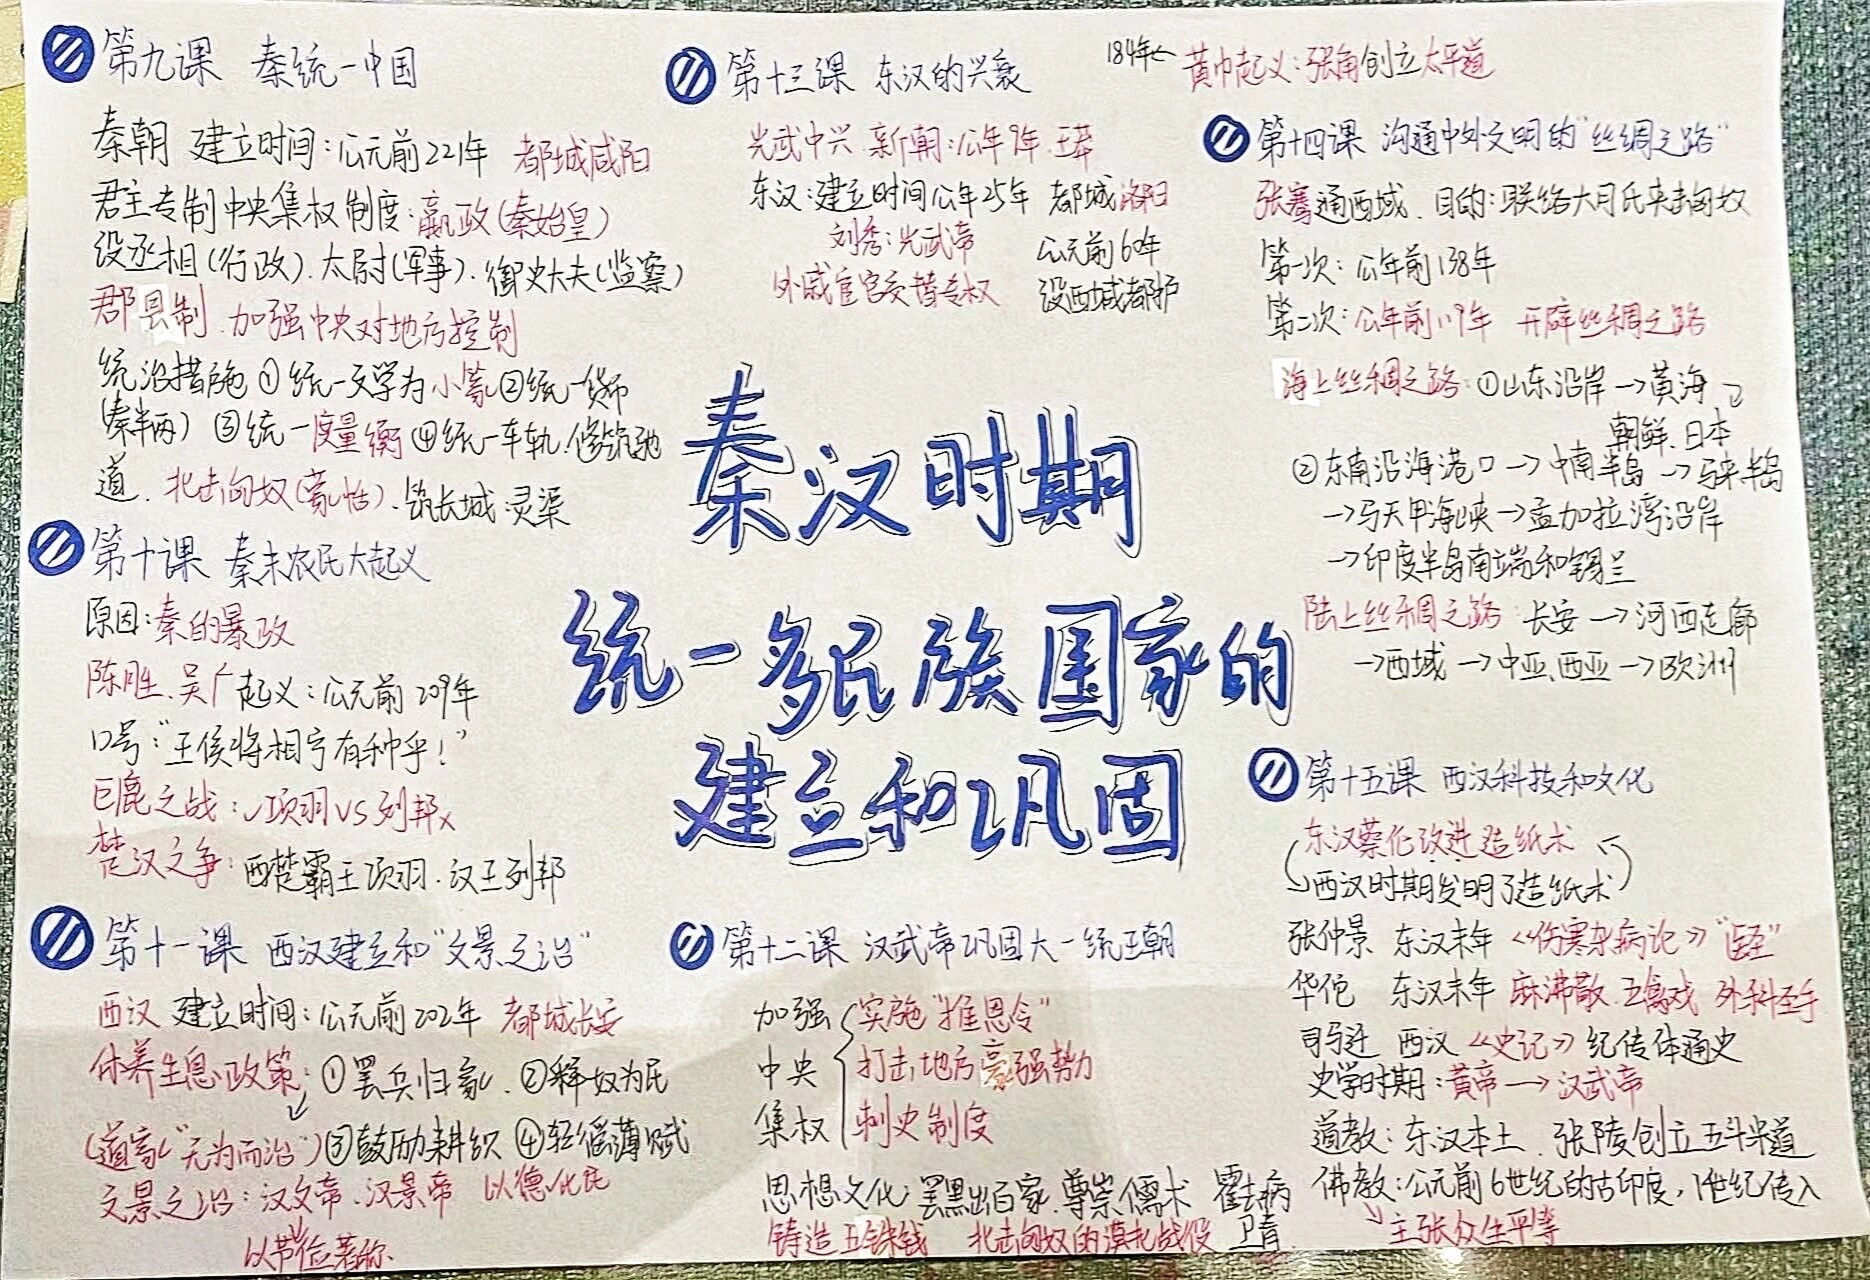 第九课 秦统一中国
秦朝 建立时间：公元前221年 都城咸阳
君主专制中央集权制度：嬴政（秦始皇）
设丞相（行政）.太尉（军事）.御史大夫（监察）
郡县制.加强中央对地方控制
统治措施 ①统一文字为小篆②统一货币
（秦半两）③统一度量衡④统一车轨.修筑驰
道.北击匈奴（蒙恬）.筑长城.灵渠
第十课 秦末农民大起义
原因：秦的暴政
陈胜.吴广起义：公元前209年
口号："王侯将相宁有种乎！"
巨鹿之战：✓项羽VS刘邦x
楚汉之争：西楚霸王项羽.汉王刘邦
第十一课 西汉建立和"文景之治"
西汉 建立时间：公元前202年 都城长安
休养生息政策：①罢兵归家.②释奴为民
（道家"无为而治"）③鼓励耕织 ④轻徭薄赋
文景之治：汉文帝.汉景帝 以德化民
以节俭著称.
第十三课 东汉的兴衰
光武中兴.新朝：公年9年.王莽
东汉：建立时间公年25年 都城洛阳
刘秀：光武帝
外戚宦官交替专权
公元前60年
设西域都护
秦汉时期
统一多民族国家的
建立和巩固
第十二课 汉武帝巩固大一统王朝
加强
中央
集权
实施"推恩令"
打击地方豪强势力
刺史制度
思想文化：罢黜百家.尊崇儒术 霍去病
铸造五铢钱 北击匈奴的漠北战役 卫青.
184年← 黄巾起义：张角创立太平道
第十四课 沟通中外文明的"丝绸之路"
张骞通西域.目的：联络大月氏夹击匈奴
第一次：公年前138年
第二次：公年前119年 开辟丝绸之路
海上丝绸之路：①山东沿岸→黄海→
朝鲜.日本
②东南沿海港口→中南半岛→马来半岛
→马六甲海峡→孟加拉湾沿岸
→印度半岛南端和锡兰
陆上丝绸之路：长安→河西走廊
→西域→中亚.西亚→欧洲
第十五课 西汉科技和文化
东汉蔡伦改进造纸术
西汉时期发明了造纸术
张仲景 东汉末年《伤寒杂病论》"医圣"
华佗 东汉末年 麻沸散.五禽戏 外科圣手
司马迁 西汉《史记》纪传体通史
史学时期：黄帝→汉武帝
道教：东汉本土.张陵创立五斗米道
佛教：公元前6世纪的古印度，1世纪传入
→主张众生平等